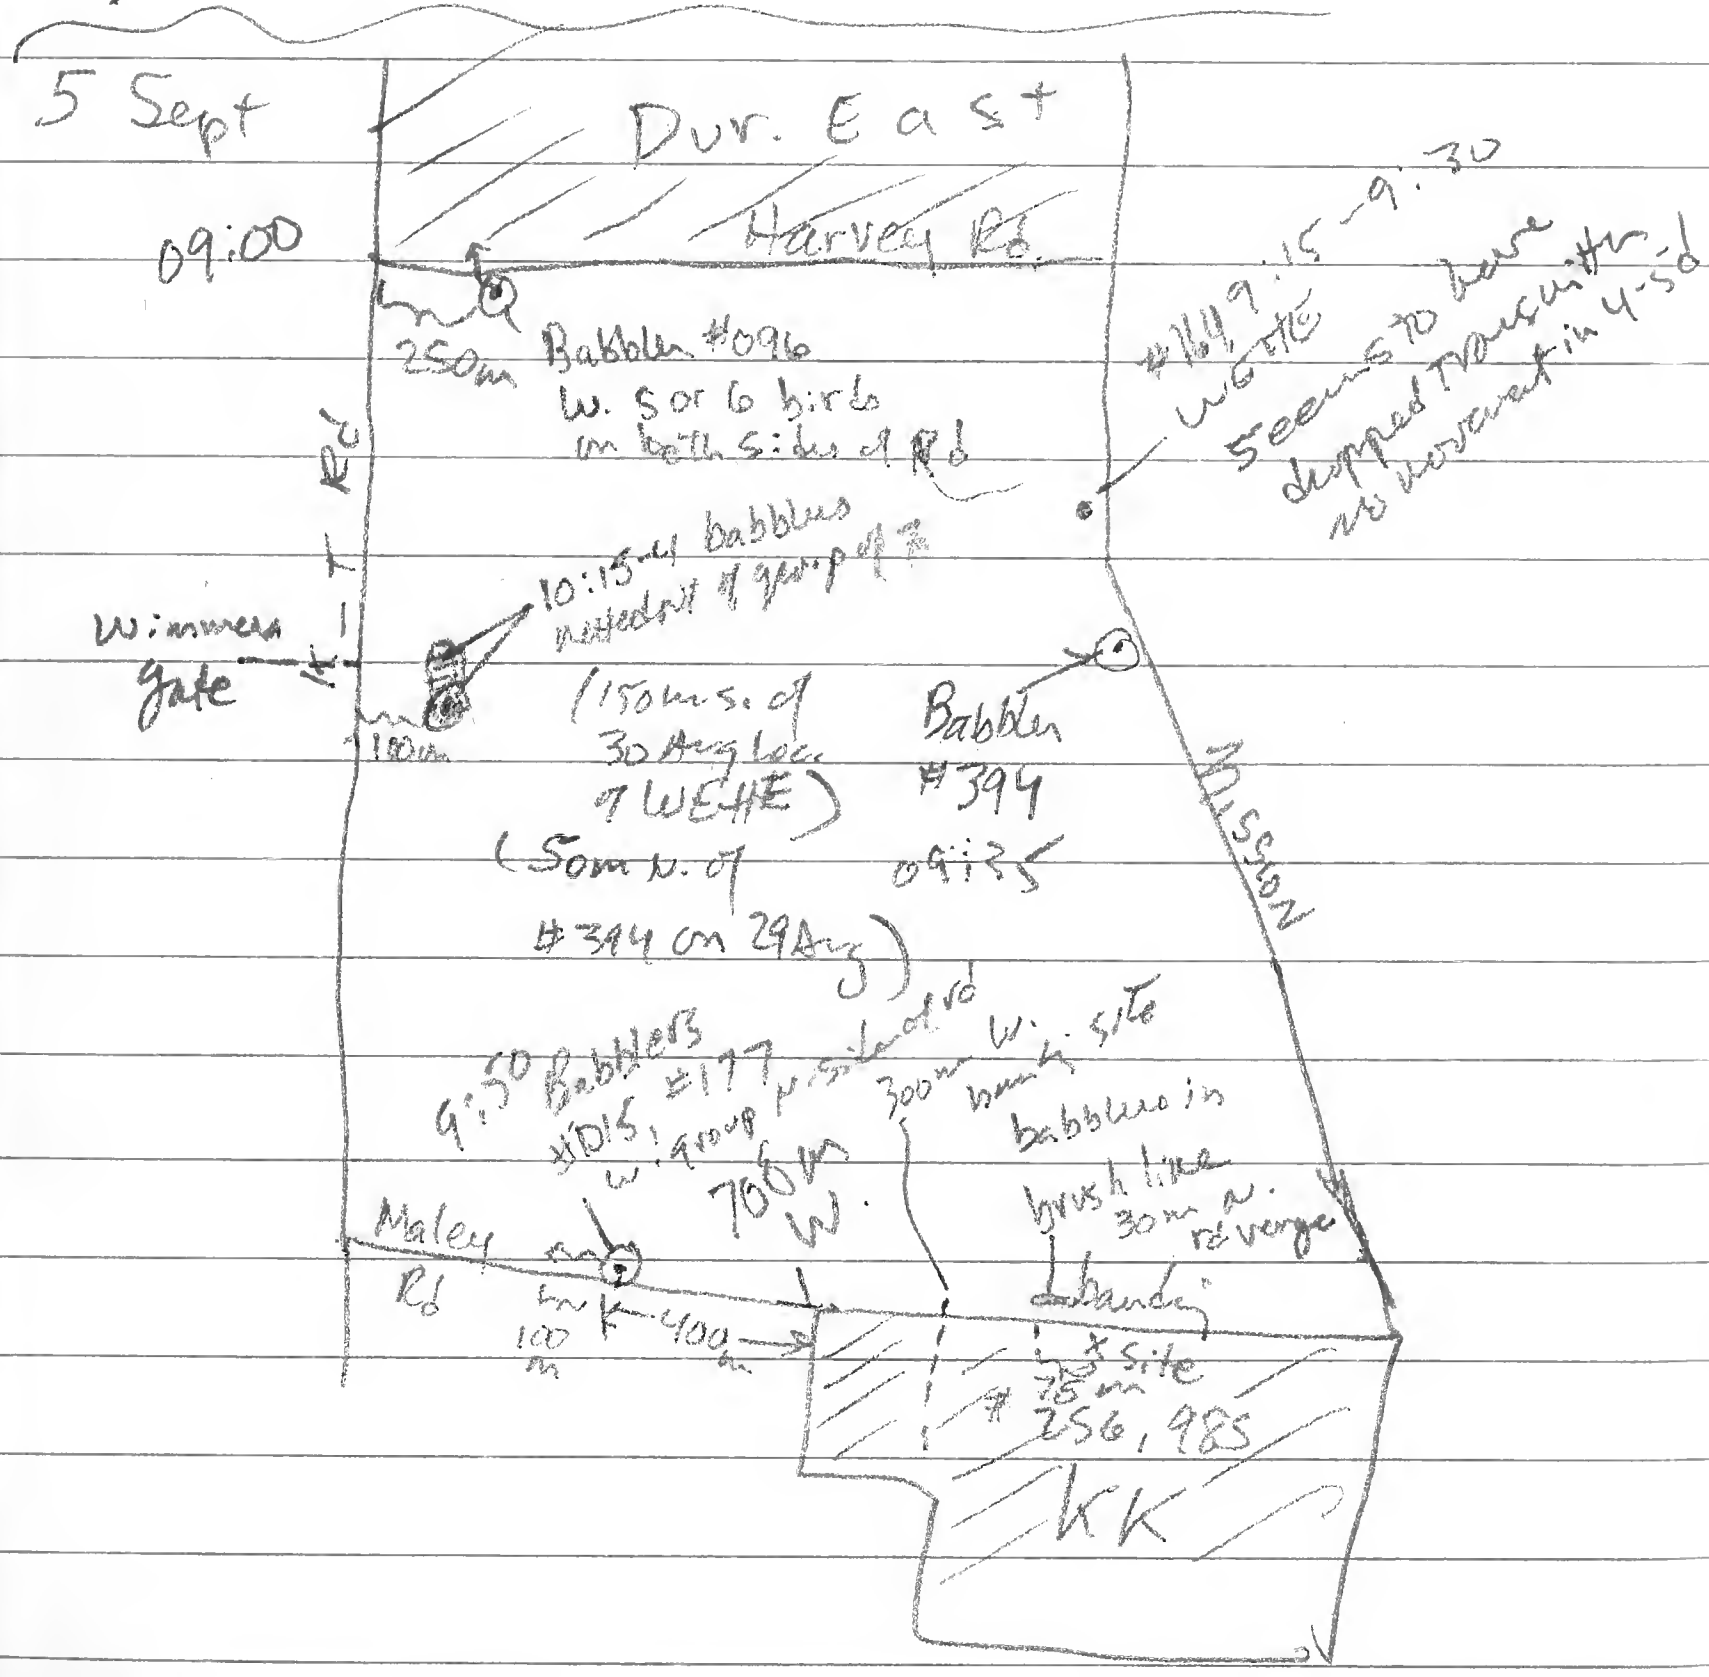 5 Sept
Dur. East
09:00
Harvey Rd.
250m
Babbler #096
w. 5 or 6 birds
on both sides of Rd
#164 9:15-9:30
WEHE
seems to have
dropped transmitter
no movement in 4-5d
K-T Rd
10:15-4 babblers
netted out of group of 7
Wimmera
gate
100m
(150m s. of
30 Aug loc.
of WEHE)
(50m N. of
#394 on 29 Aug)
Babbler
#394
09:35
Mission
9:50 Babblers
#015, #177
w. group N. side of rd
700m
W.
300m W.
site
babblers in
brush line
30m N.
rd verge
Maley
Rd
100
m
400
m
banding
x site
75m
#
256, 985
KK